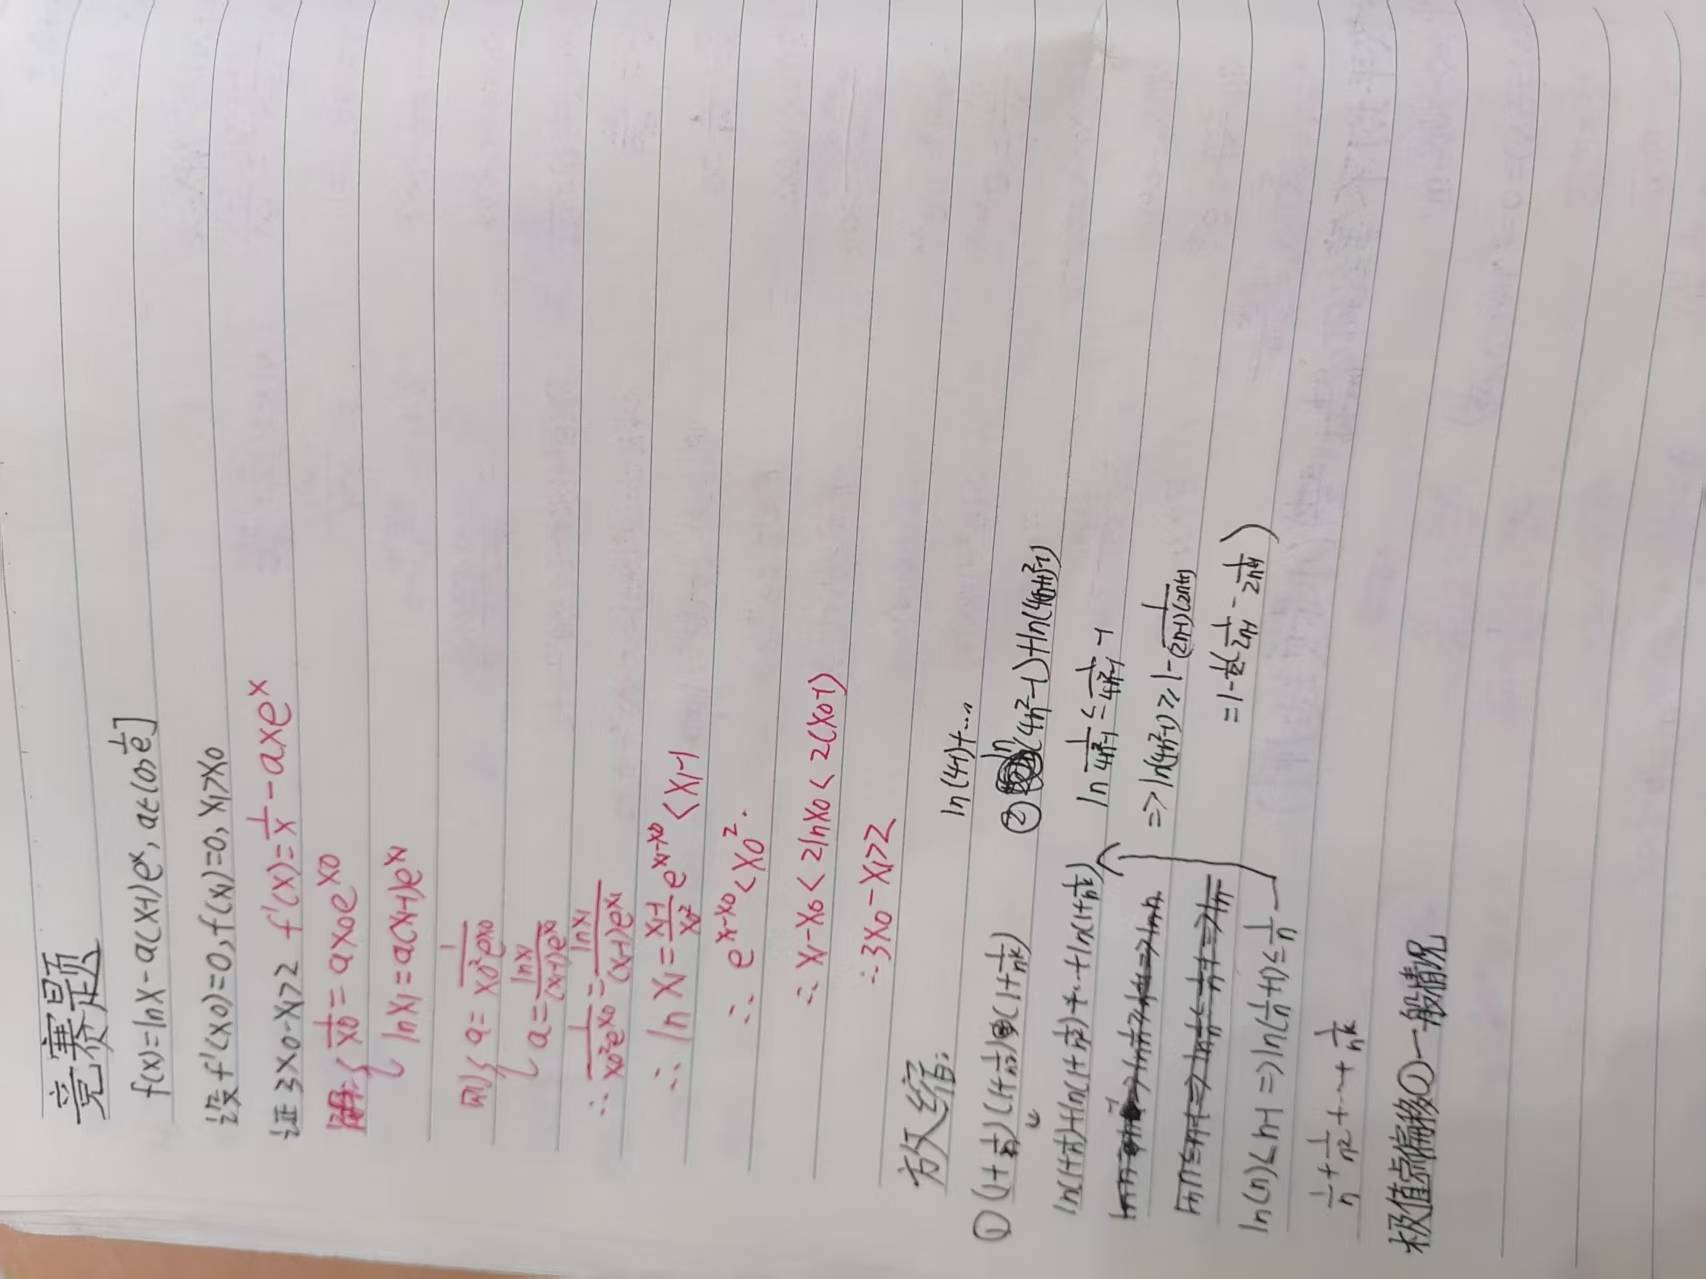 竞赛题
f(x)=lnx-a(x-1)eˣ, a∈(0,1/e]
设f'(x₀)=0, f(x₁)=0, x₁>x₀
证 3x₀-x₁>2 f'(x)=1/x-axeˣ
解:{1/x₀=ax₀e^x₀
{lnx₁=a(x₁-1)e^x₁
则{a=1/(x₀²e^x₀)
{a=lnx₁/((x₁-1)e^x₁)
∴1/(x₀²e^x₀)=lnx₁/((x₁-1)e^x₁)
∴lnx₁=(x₁-1)/x₀² e^(x₁-x₀)<x₁-1
∴e^(x₁-x₀)<x₀².
∴x₁-x₀<2lnx₀<2(x₀-1)
∴3x₀-x₁>2
放缩:
①(1+1/n)(1+1/n²)(1+1/nᵏ)
ln(1+1/n)+ln(1+1/n²)+…+ln(1+1/nᵏ)
ln(n)≤n-1⇒ln(1/n+1)≤1/n
1/n+1/n²+…+1/nᵏ
ln(4-1)+…
②ln(4n²-1)+ln(4(n+1)²-1)
ln 1/(4n²-1)≤1/(4n²-1)-1
⇒ln(4n²-1)≥1-1/((2n-1)(2n+1))
=1-½(1/(2n-1)-1/(2n+1))
极值点偏移①一般情况